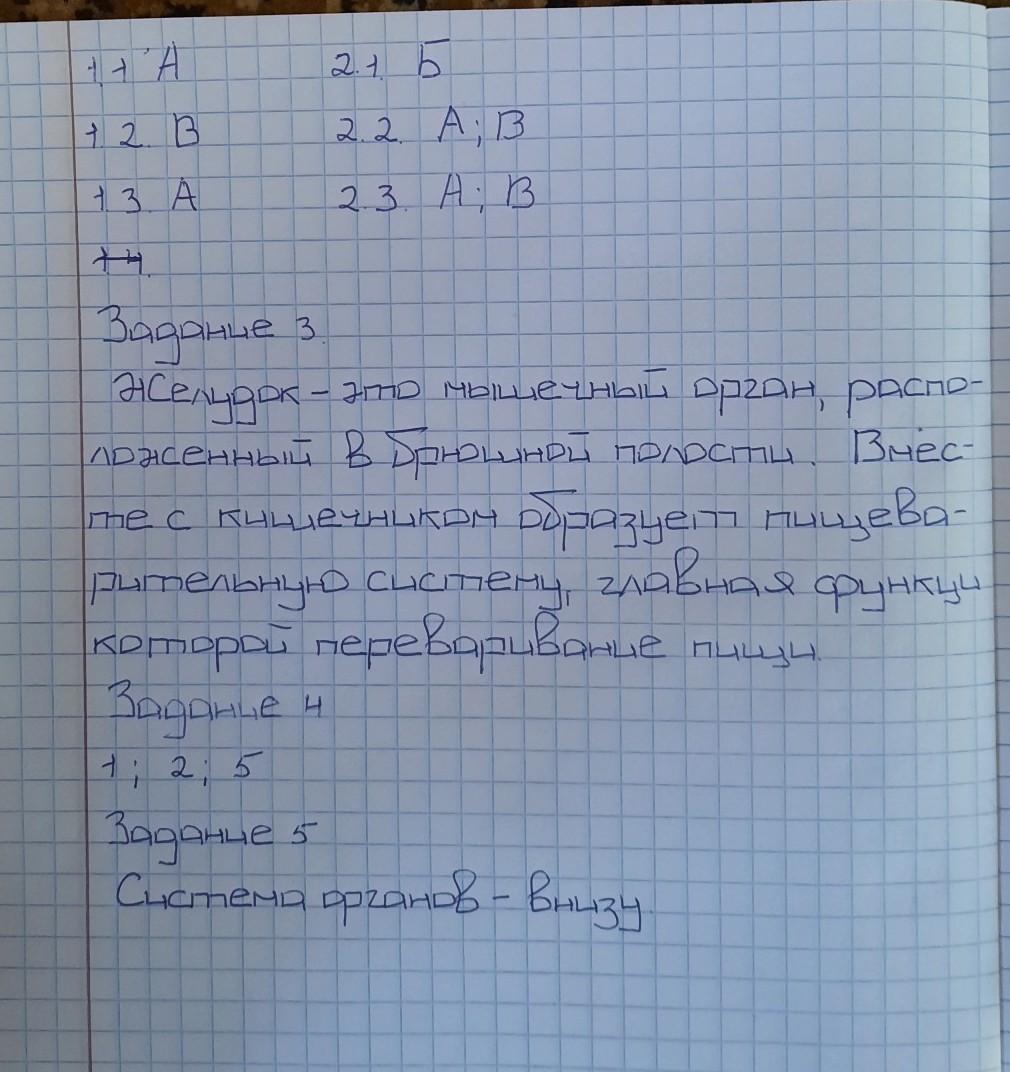 1.1 А 2.1. Б
1.2. В 2.2. А; В
1.3. А 2.3. А; В
1.4.
Задание 3.
Желудок - это мышечный орган, распо-
ложенный в брюшной полости. Вмес-
те с кишечником образует пищева-
рительную систему, главная функци
которой переваривание пищи.
Задание 4
1; 2; 5
Задание 5
Система органов - внизу.